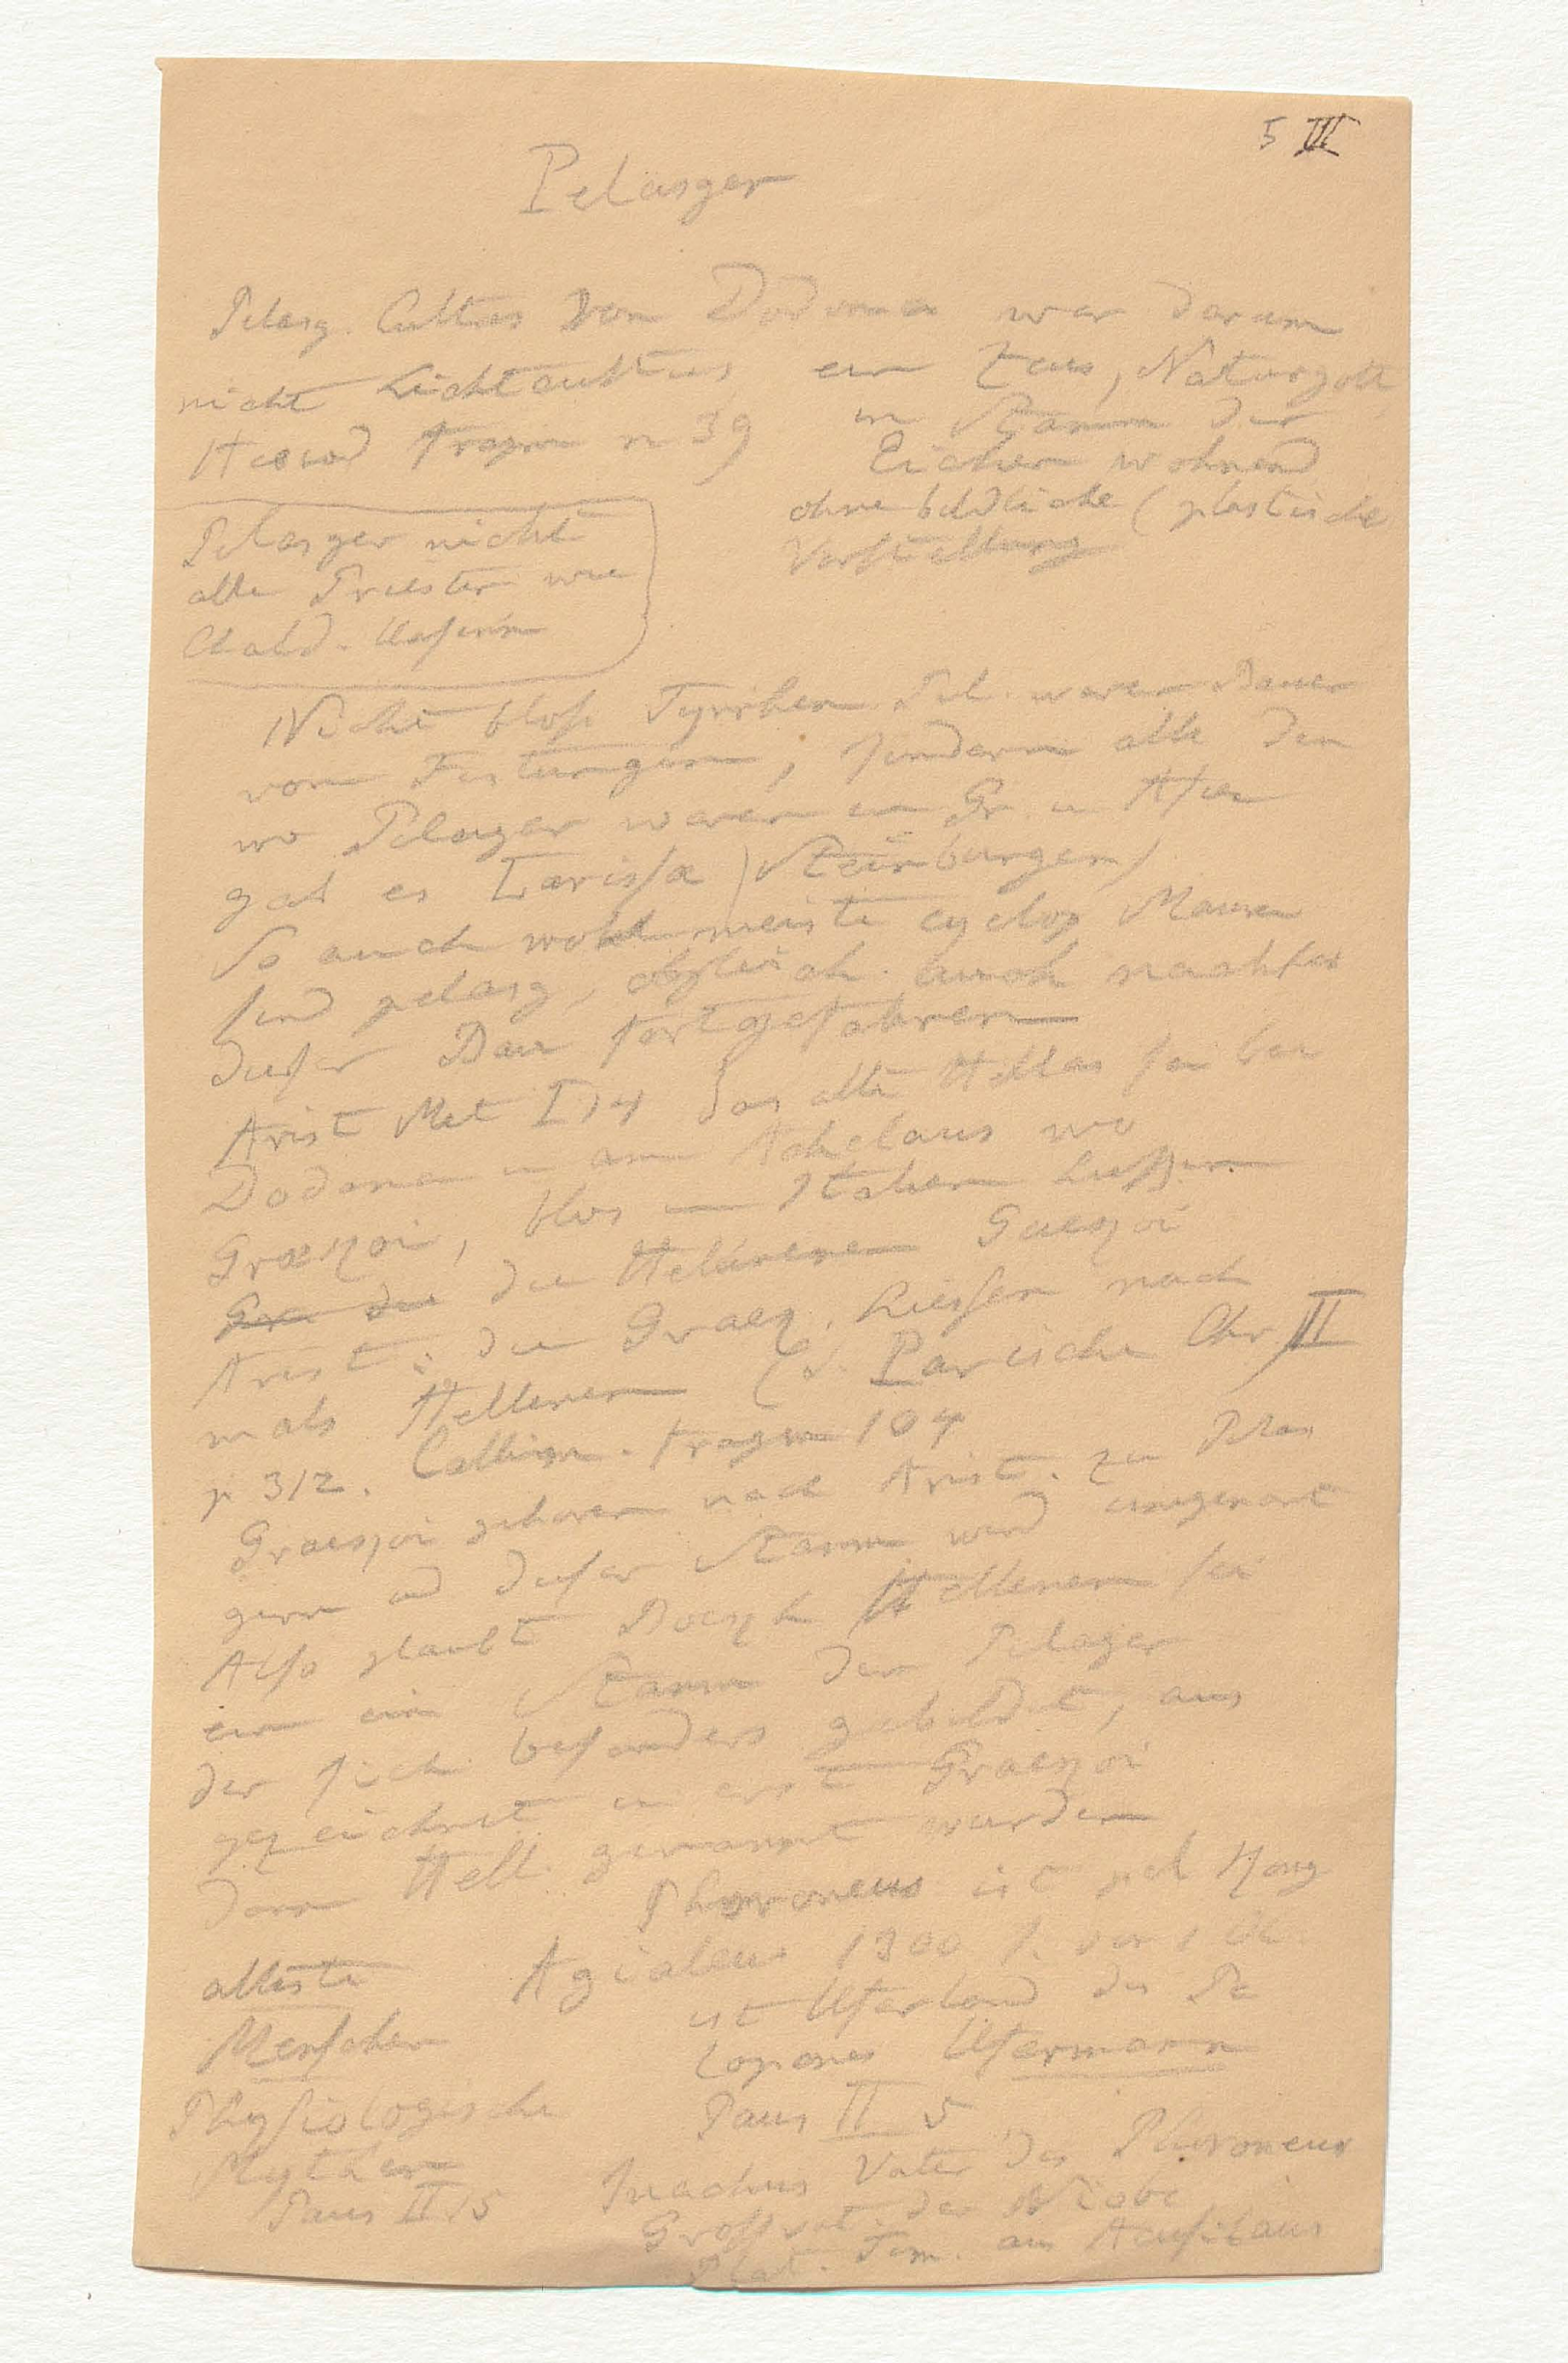 5 III
Pelasger
Pelasg. Cultus von Dodona war darum
nicht Lichtcultus ein Zeus, Naturgott
Hesiod Fragm n 39 im Stamm der
Eichen wohnend
ohne bildliche (plastische
Vorstellung
Pelasger nicht
alle Priester wie
Chald.
Nicht bloß Tyrrhen Pel. waren Bauer
von Festungen, sondern alle den
wo Pelasger waren in Gr. u Asien
gab es Larissa (Steinburgen)
So auch wohl meiste cyclop Mauren
sind pelasg, obgleich auch nachher
dieser Bau fortgefahren
Arist Met I 14 das alte Hellas sei bei
Dodona u am Achelaus wo
Graeqoi, blos in Italien hießen
Gra die die Hellenen Graeqoi
Arist: die Graeq. hießen nach
mals Hellenen (s. Parische Chr. II
p 312. Callim. Fragm 104
Graeqoi gehoren nach Arist. zu Pelas
gern und dieser Stamm wird umgenant
Also glaubt Boeqh Hellenen sei
ein ein Stamm der Pelager
der sich besonders gebildet, aus
gezeichnet u erst Graeqoi
dann Hell. genannt wurden
Phoroneus ist pel
alteste Agialeus 1900 J. vor
Menschen ist Uferland des Pe
lopones Ufermann
Physiologische Paus II 5
Mythen Inachus Vater des Phoroneus
Paus II 15 Großvat. der Niobe
Plat. Tim. aus Acusilaus